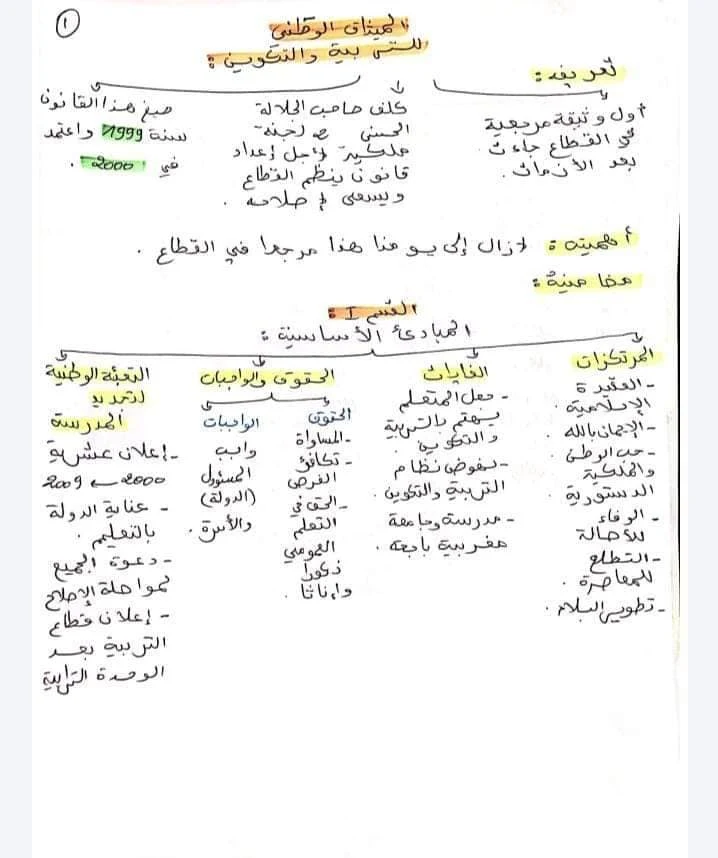 1
الميثاق الوطني
للتربية والتكوين :
تعريفه :
أول وثيقة مرجعية
في القطاع جاءت
بعد الأزمات .
كلف صاحب الجلالة
الحسن
ملكية لأجل إعداد
قانون ينظم القطاع
ويسعى لإصلاحه .
صيغ هذا القانون
سنة 1999 واعتمد
في 2000 .
أهميته : لازال إلى يومنا هذا مرجعا في القطاع .
مضامينه :
القسم I :
المبادئ الأساسية :
المرتكزات
- العقيدة
الإسلامية .
- الإيمان بالله
- حب الوطن
والملكية
الدستورية .
- الوفاء
للأصالة
- التطلع
للمعاصرة .
- تطوير البلاد .
الغايات
- جعل المتعلم
يهتم بالتربية
والتكوين .
- نهوض نظام
التربية والتكوين .
- مدرسة وجامعة
مغربية ناجعة .
الحقوق والواجبات
الحقوق
- المساواة
- تكافؤ
الفرص
- الحق في
التعلم
العمومي
ذكورا
وإناثا .
الواجبات
واجب
المسؤول
(الدولة)
والأسرة .
التعبئة الوطنية
لتجديد
المدرسة
- إعلان عشرية
2000 ← 2009
- عناية الدولة
بالتعليم .
- دعوة الجميع
لمواصلة الإصلاح
- إعلان قطاع
التربية بعد
الوحدة الترابية